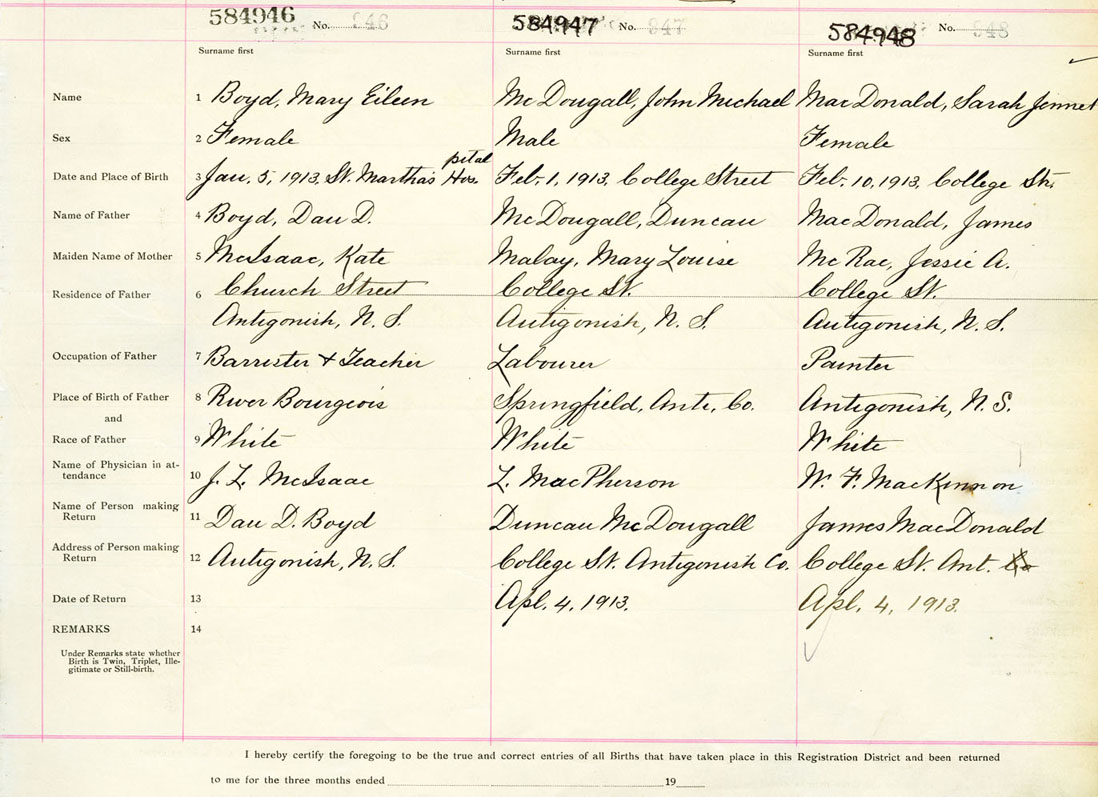 584946 No. 946 584947 No. 947 584948 No. 948
Surname first Surname first Surname first
Name 1 Boyd, Mary Eileen McDougall, John Michael MacDonald, Sarah Jennet
Sex 2 Female Male Female
pital
Date and Place of Birth 3 Jan. 5, 1913. St. Martha's Hos Feb. 1, 1913. College Street Feb. 10, 1913. College St.
Name of Father 4 Boyd, Dan D. McDougall, Duncan MacDonald, James
Maiden Name of Mother 5 McIsaac, Kate Malay, Mary Louise McRae, Jessie A.
Residence of Father 6 Church Street College St. College St.
Antigonish, N. S. Antigonish, N. S. Antigonish, N. S.
Occupation of Father 7 Barrister & Teacher Labourer Painter
Place of Birth of Father 8 River Bourgeois Springfield, Ant., Co. Antigonish, N. S.
and
Race of Father 9 White White White
Name of Physician in at-
tendance 10 J. L. McIsaac L. MacPherson W. F. MacKinnon
Name of Person making
Return 11 Dan D. Boyd Duncan McDougall James MacDonald
Address of Person making
Return 12 Antigonish, N. S. College St. Antigonish Co. College St. Ant.
Date of Return 13 Apl. 4, 1913. Apl. 4, 1913.
REMARKS 14
Under Remarks state whether
Birth is Twin, Triplet, Ille-
gitimate or Still-birth.
I hereby certify the foregoing to be the true and correct entries of all Births that have taken place in this Registration District and been returned
to me for the three months ended 19